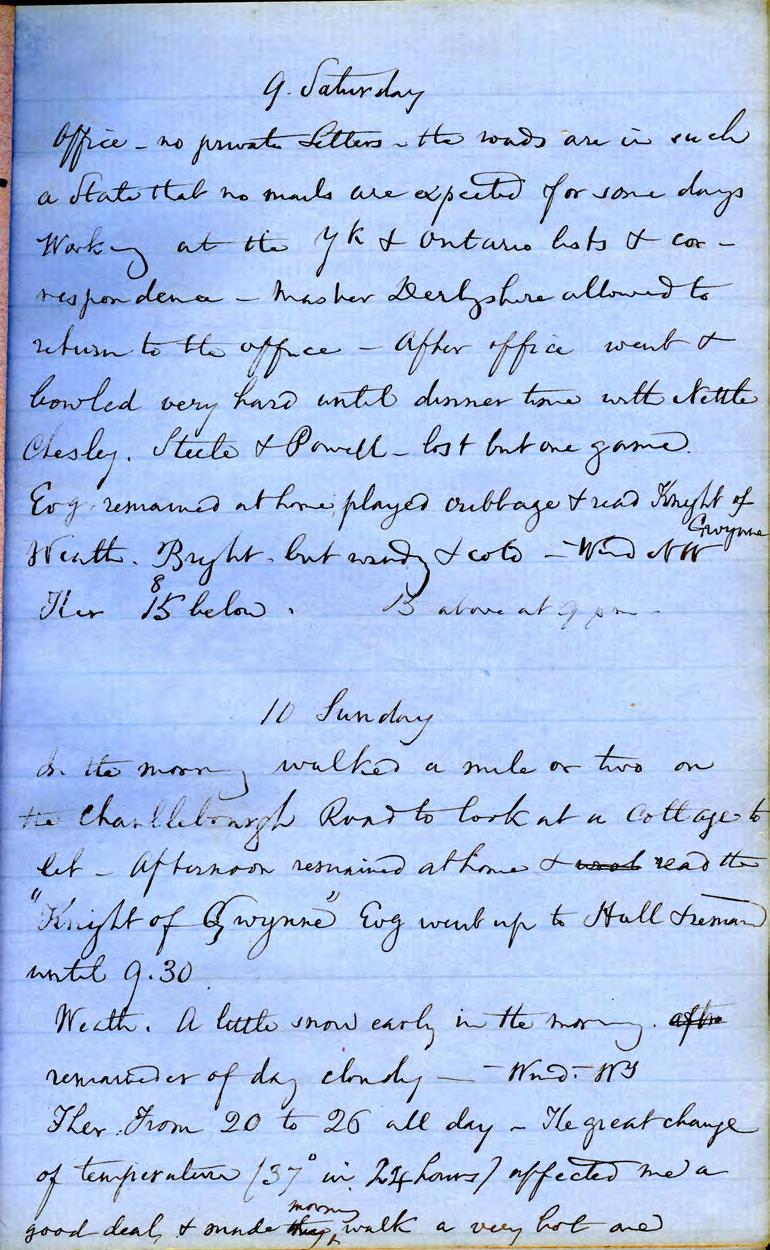 9. Saturday
Office - no private letters - the roads are in such
a State that no mails are expected for some days
Working at the YK & Ontario lists & cor-
respondence - Master Derbyshire allowed to
return to the office - After office went &
bowled very hard until dinner time with Nettle
Chesley. Steele & Powell - lost but one game.
Evg. remained at home, played cribbage & read Knight of
Gwynne
Weath. Bright. but windy & cold - Wind NW
8
Ther 15 below. 13 above at 9 pm -
10 Sunday
In the morning walked a mile or two on
the Road to look at a Cottage to
let - Afternoon remained at home & read the
"Knight of Gwynne" Evg went up to Hall &
until 9.30
Weath. A little snow early in the morning.
remainder of day cloudy - Wind -
Ther. From 20 to 26 all day - The great change
of temperature (37° in 24 hours) affected me a
morning
good deal, & made walk a very hot one